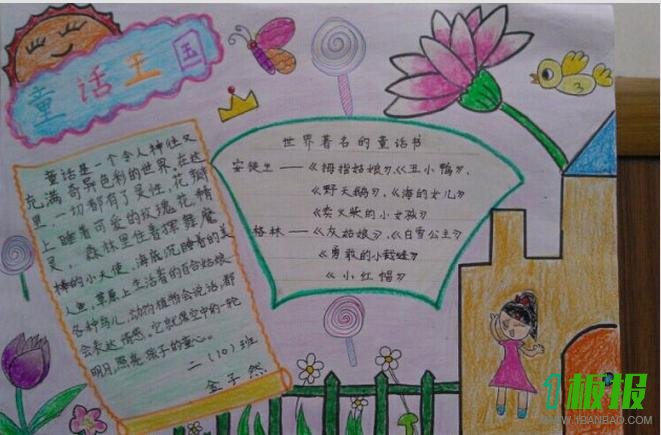 童话王国
童话是一个令人神往又
充满奇异色彩的世界。在这
里,一切都有了灵性,花瓣
上睡着可爱的玫瑰花精
灵,森林里住着挥舞魔
棒的小天使,海底沉睡着的美
人鱼,草原上生活着的百合姑娘…
各种鸟儿,动物植物会说话,都
会表达情感。它就像空中的一轮
明月,照亮孩子的童心。
二(10)班
金子然
世界著名的童话书
安徒生——《拇指姑娘》、《丑小鸭》、
《野天鹅》、《海的女儿》
《卖火柴的小女孩》
格林——《灰姑娘》、《白雪公主》
《勇敢的小裁缝》
《小红帽》
1板报
WWW.1BANBAO.COM